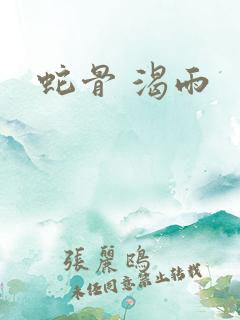 蛇骨 渴雨
張麗鷗
未任同意禁止转载